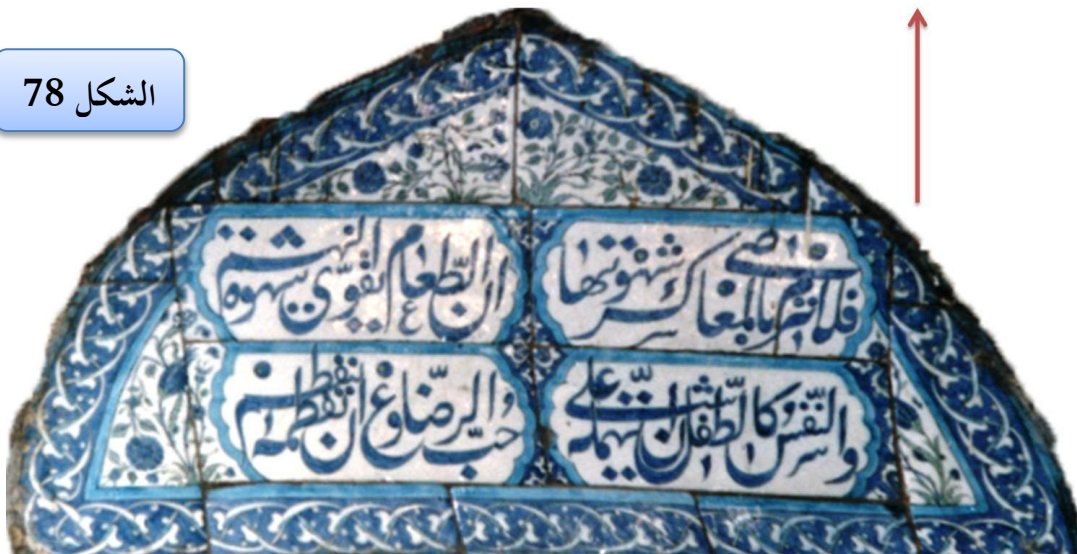 الشكل 78
فلا ترم بالمعاصي كسر شهوتها
ان الطعام يقوّي شهوة النهم
والنّفس كالطّفل ان تهمله شبّ على
حبّ الرّضاع وان تفطمه ينفطم